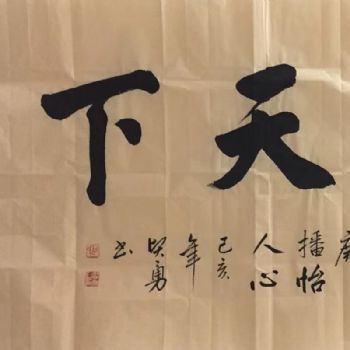 天下
播怡
人心
己亥
年
勇
书